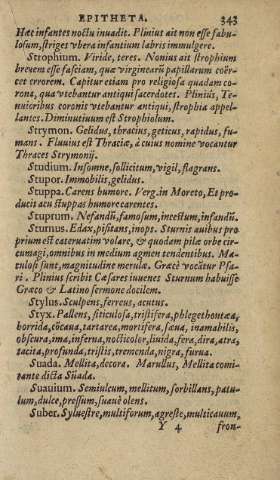 EPITHETA. 343
Hæc infantes noctu inuadit. Plinius ait non esse fabu-
losum, striges vbera infantium labris immulgere.
Strophium. Viride, teres. Nonius ait strophium
breuem esse fasciam, quæ virginearū papillarum coër-
cet errorem. Capitur etiam pro religiosa quadam co-
rona, qua vtebantur antiqui sacerdotes. Plinius, Te-
nuioribus coronis vtebantur antiqui, strophia appel-
lantes. Diminutiuum est Strophiolum.
Strymon. Gelidus, thracius, geticus, rapidus, fu-
mans. Fluuius est Thraciæ, à cuius nomine vocantur
Thraces Strymonij.
Studium. Insomne, sollicitum, vigil, flagrans.
Stupor. Immobilis, gelidus.
Stuppa. Carens humore. Verg. in Moreto, Et pro-
ducit acu stuppas humore carentes.
Stuprum. Nefandū, famosum, incestum, infandū.
Sturnus. Edax, pisitans, inops. Sturnis auibus pro
prium est cateruatim volare, & quodam pilæ orbe cir-
cunagi, omnibus in medium agmen tendentibus. Ma-
culosi sunt, magnitudine merulæ. Græcè vocātur Psa-
ri. Plinius scribit Cæsares iuuenes Sturnum habuisse
Græco & Latino sermone docilem.
Stylus. Sculpens, ferreus, acutus.
Styx. Pallens, siticulosa, tristifera, phlegethontæa,
horrida, cōcaua, tartarea, mortifera, sæua, inamabilis,
obscura, ima, inferna, nocticolor, liuida, fera, dira, atra,
tacita, profunda, tristis, tremenda, nigra, furua.
Suada. Mellita, decora. Marullus, Mellita comi-
tante dicta Suada.
Suauium. Semiulcum, mellitum, sorbillans, patu-
lum, dulce, pressum, suaue olens.
Suber. Syluestre, multiforum, agreste, multicauum,
Y 4 fron-